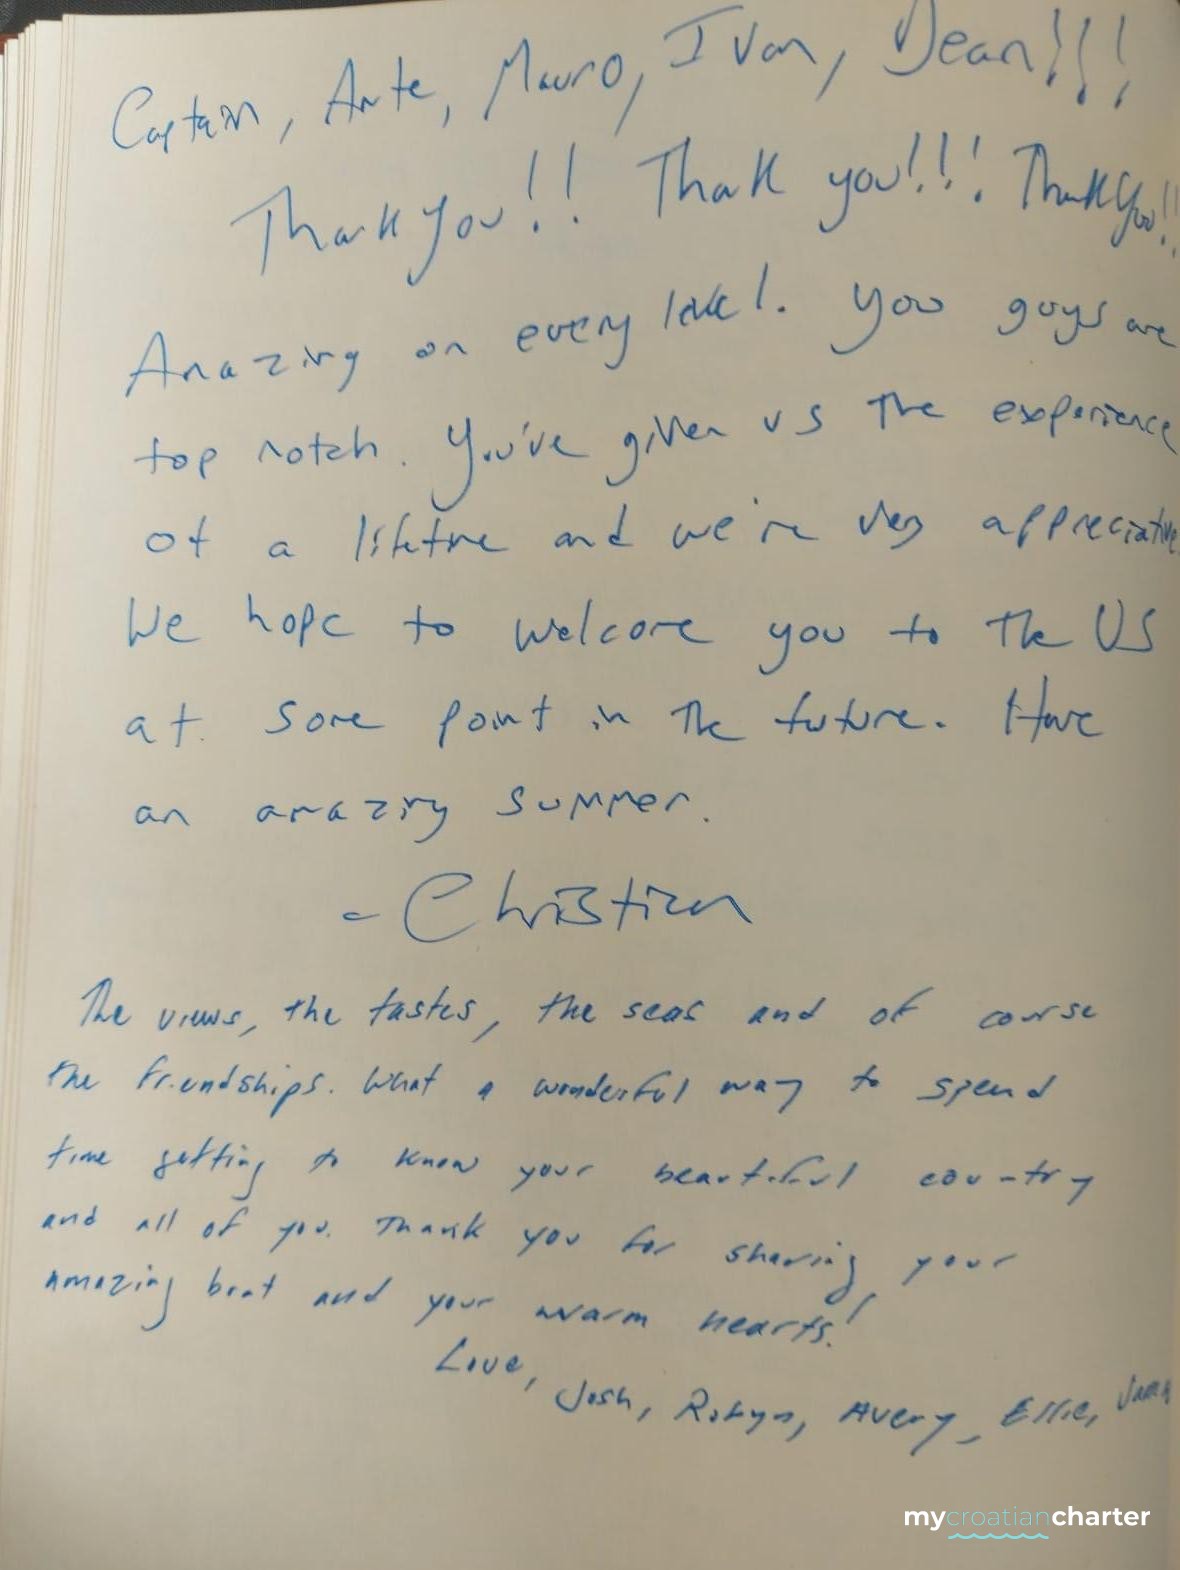 Captain, Ante, Mauro, Ivan, Dean!!!
Thank you!! Thank you!!! Thank you!!
Amazing on every level. You guys are
top notch. You've given us the experience
of a lifetime and we're very appreciative
We hope to welcome you to the US
at some point in the future. Have
an amazing summer.
- Christian
The views, the tastes, the seas and of course
the friendships. What a wonderful way to spend
time getting to know your beautiful country
and all of you. Thank you for sharing your
amazing boat and your warm hearts!
Love,
Josh, Robyn, Avery, Ellie,
mycroatiancharter